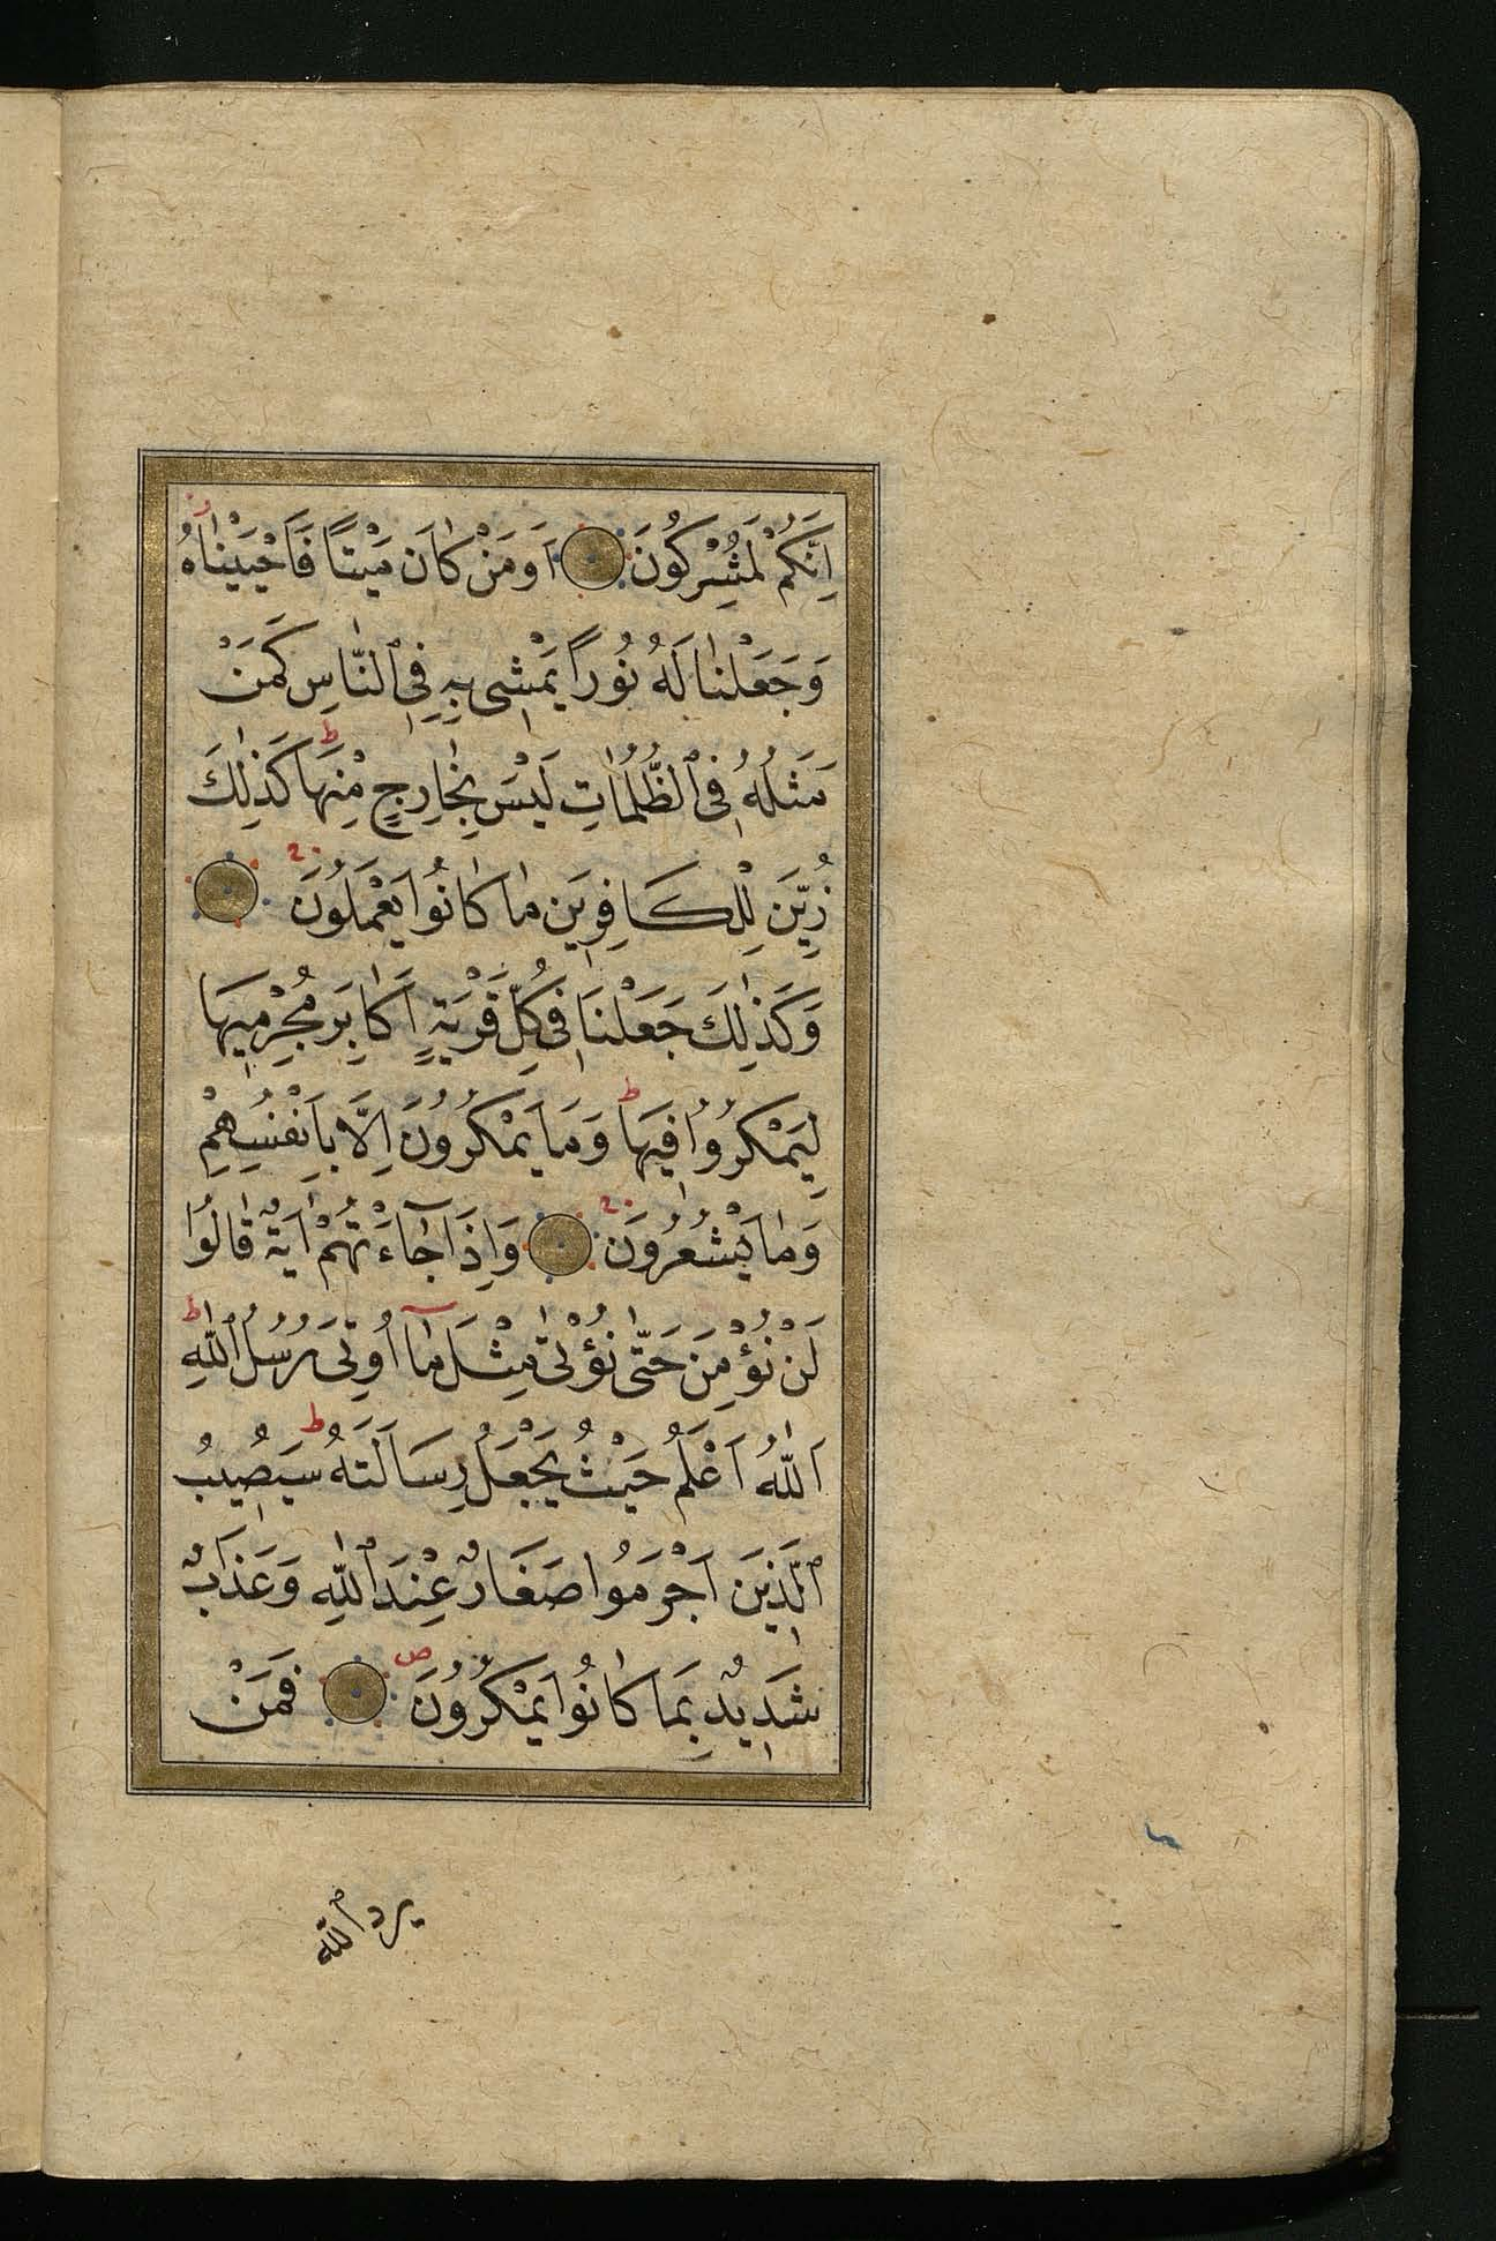 اِنَّكُمْ لَمُشْرِكُونَ اَوَمَنْ كَانَ مَيْتًا فَاَحْيَيْنَاهُ
وَجَعَلْنَا لَهُ نُورًا يَمْشِى بِهِ فِى ٱلنَّاسِ كَمَنْ
مَثَلُهُ فِى ٱلظُّلُمَاتِ لَيْسَ بِخَارِجٍ مِنْهَا ط كَذٰلِكَ
زُيِّنَ لِلْكَافِرِينَ مَا كَانُوا يَعْمَلُونَ
وَكَذٰلِكَ جَعَلْنَا فِى كُلِّ قَرْيَةٍ اَكَابِرَ مُجْرِمِيهَا
لِيَمْكُرُوا فِيهَا ط وَمَا يَمْكُرُونَ اِلَّا بِاَنْفُسِهِمْ
وَمَا يَشْعُرُونَ وَاِذَا جَآءَتْهُمْ اٰيَةٌ قَالُوا
لَنْ نُؤْمِنَ حَتّٰى نُؤْتٰى مِثْلَ مَآ اُوتِىَ رُسُلُ ٱللّٰهِ ط
اَللّٰهُ اَعْلَمُ حَيْثُ يَجْعَلُ رِسَالَتَهُ ط سَيُصِيبُ
ٱلَّذِينَ اَجْرَمُوا صَغَارٌ عِنْدَ ٱللّٰهِ وَعَذَابٌ
شَدِيدٌ بِمَا كَانُوا يَمْكُرُونَ ص فَمَنْ
يرد ٱلله